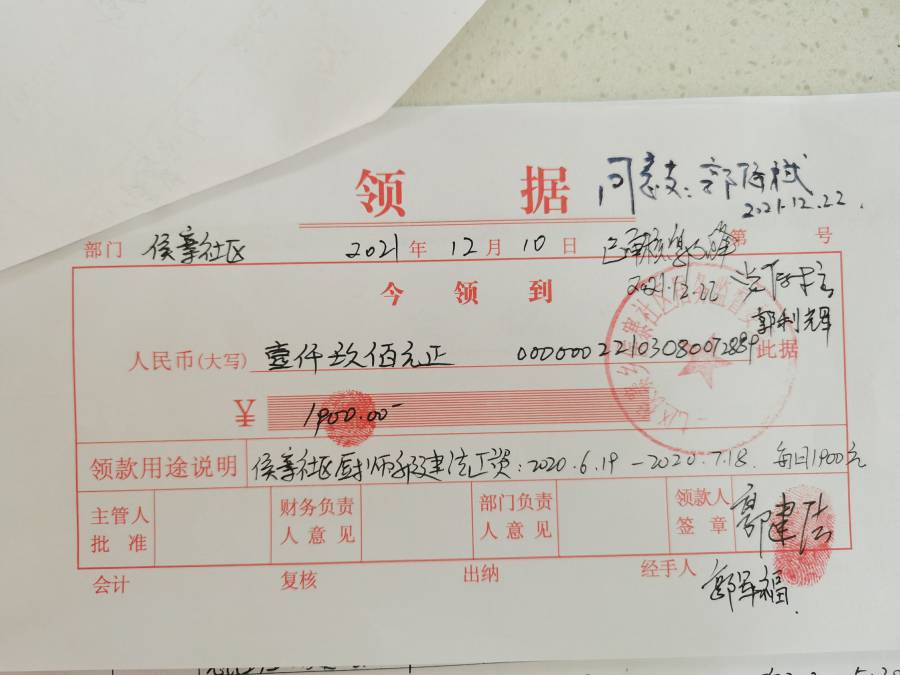 领 据
同意支:郭
2021.12.22.
部门 侯寨社区 2021年12月10日 第 号
已审核
2021.12.22
今领到
郭利辉
人民币(大写) 壹仟玖佰元正 00000022103080072889 此据
¥ 1900.00
领款用途说明 侯寨社区厨师郭建法工资:2020.6.19-2020.7.18. 每月1900元
主管人批准 财务负责人意见 部门负责人意见 领款人签章 郭建法
会计 复核 出纳 经手人 郭军福